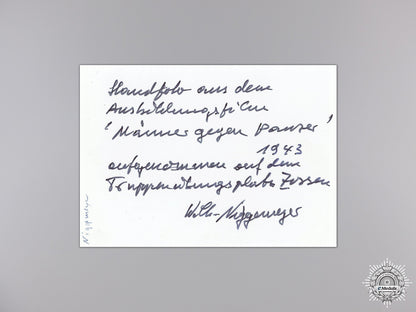 Standfoto aus dem
Ausbildungsfilm
'Männer gegen Panzer'
1943
aufgenommen auf dem
Truppenübungsplatz Zossen
Willi-Niggemeyer
Niggemeyer
eMedals